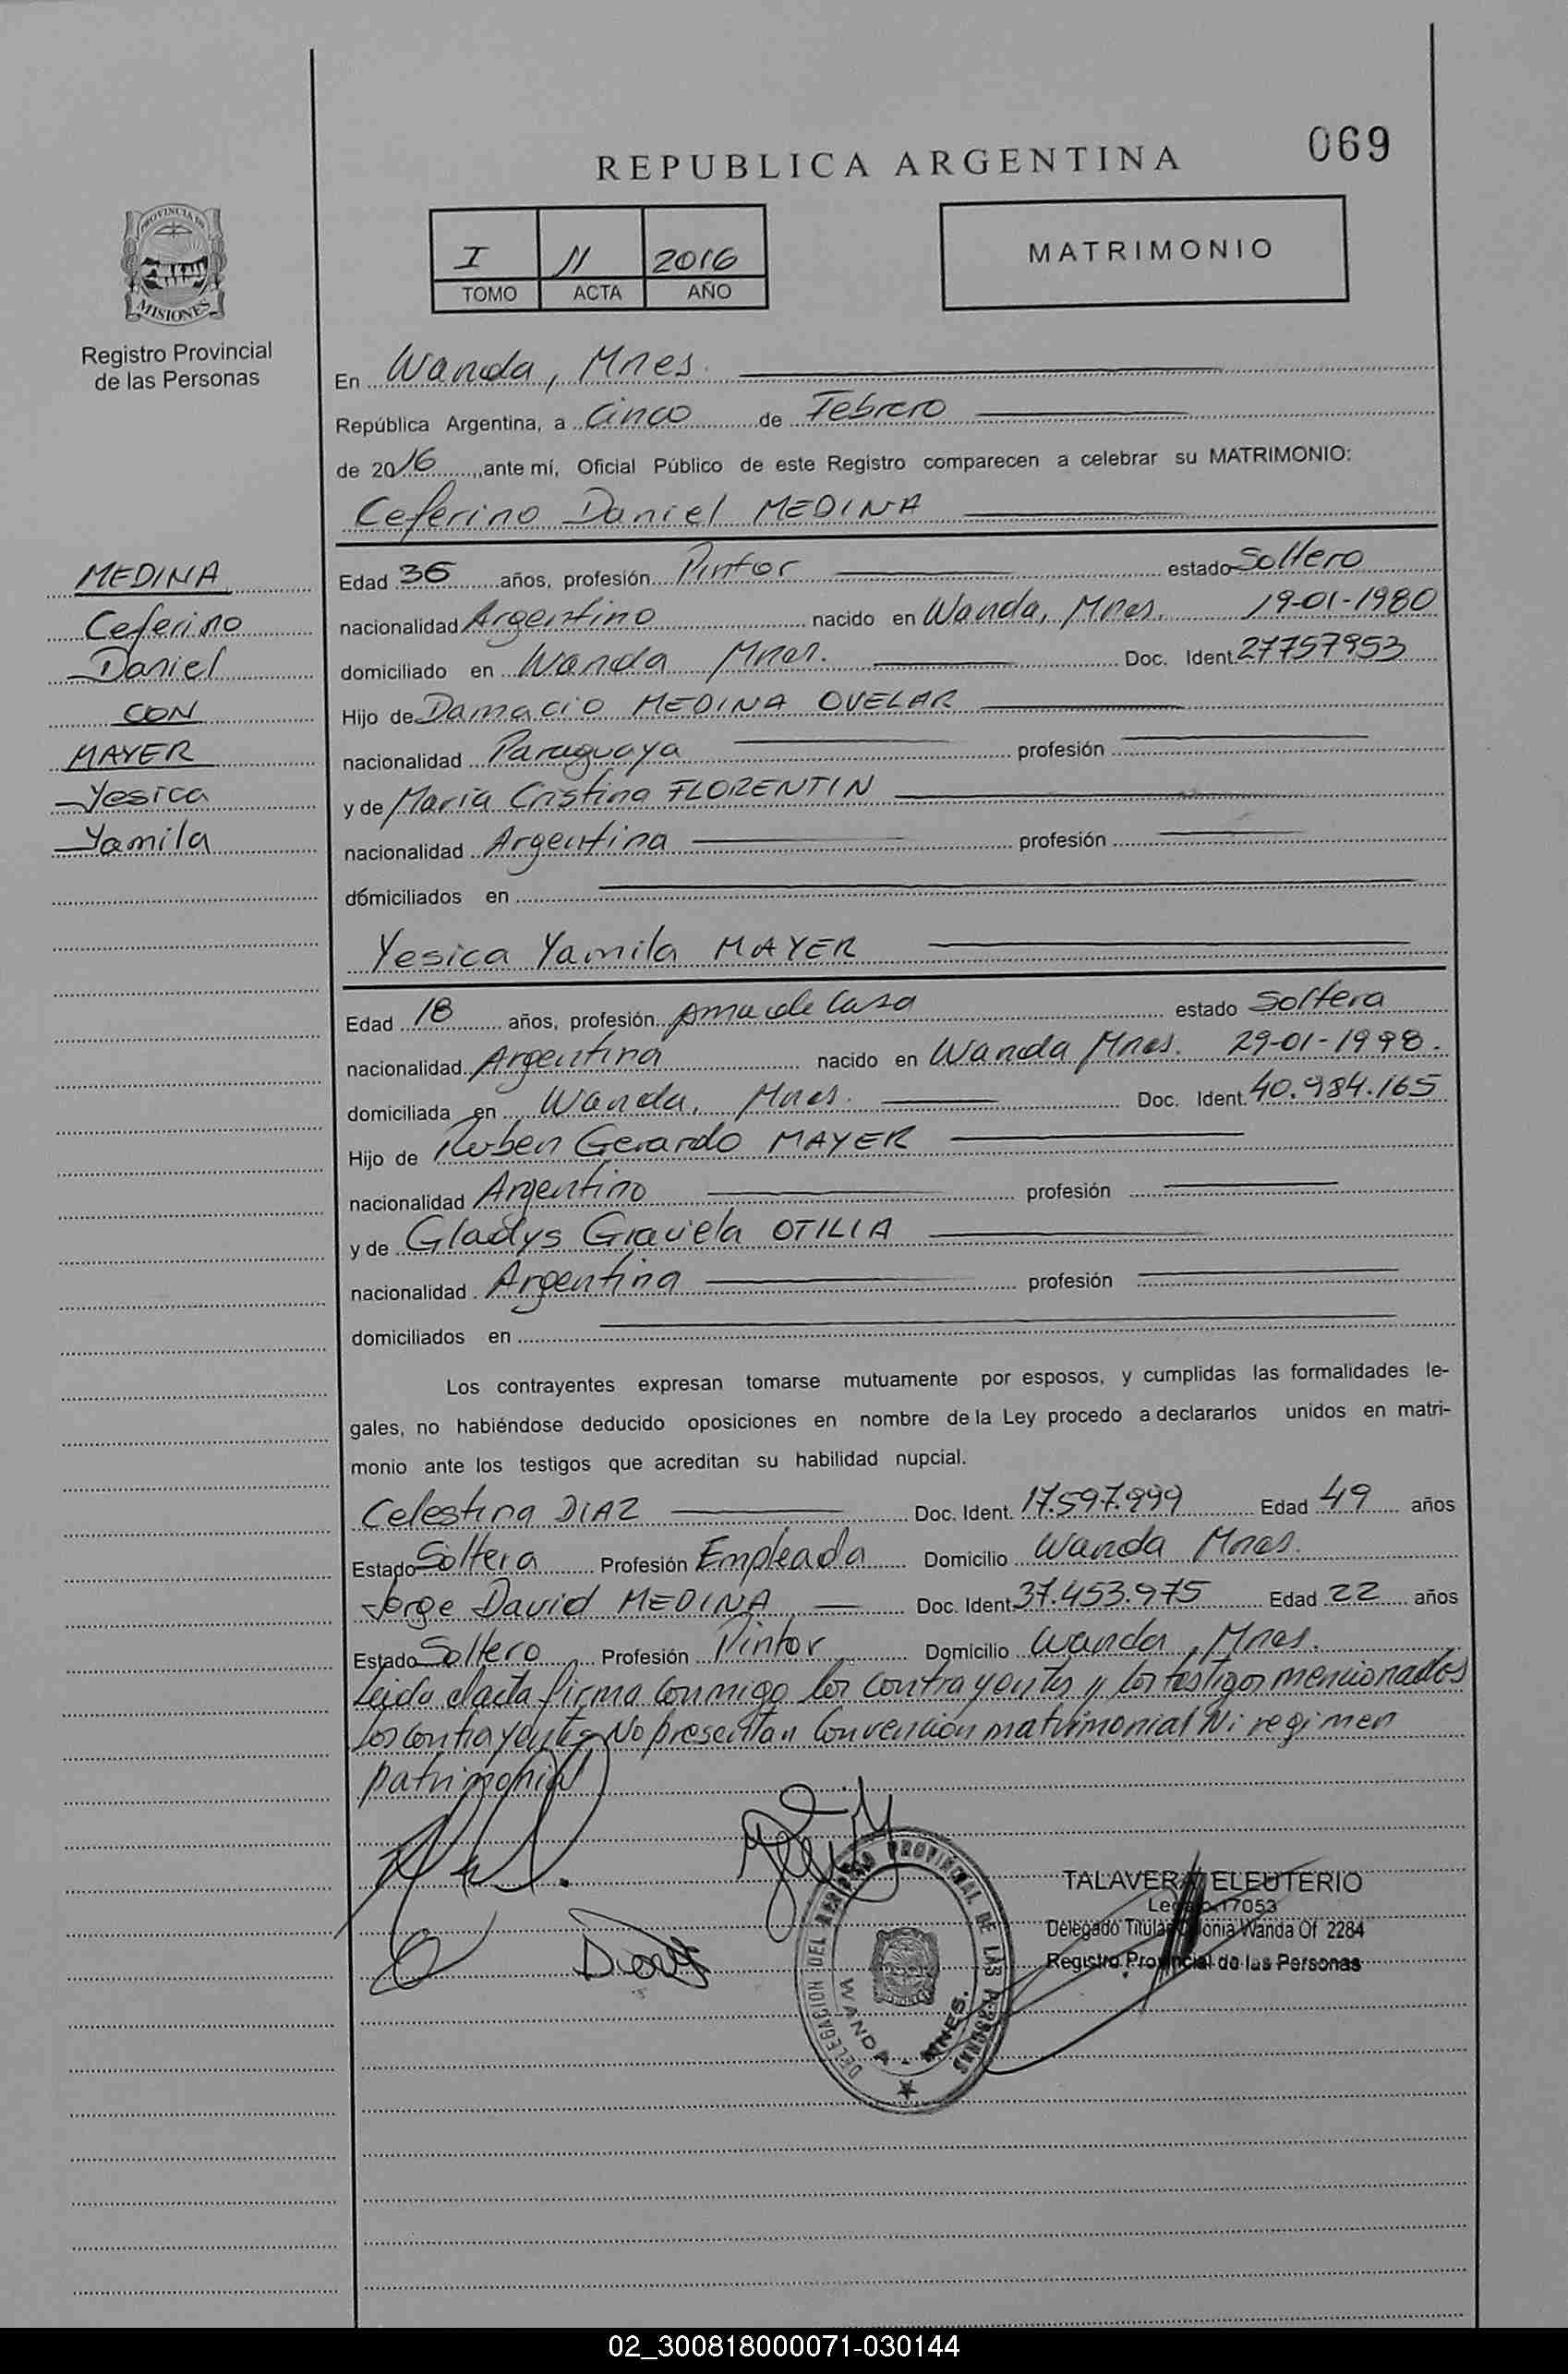 069
REPUBLICA ARGENTINA
I 11 2016
TOMO ACTA AÑO
MATRIMONIO
PROVINCIA DE
MISIONES
Registro Provincial
de las Personas
En Wanda, Mnes.
República Argentina, a Cinco de Febrero
de 2016, ante mí, Oficial Público de este Registro comparecen a celebrar su MATRIMONIO:
Ceferino Daniel MEDINA
MEDINA
Ceferino
Daniel
CON
MAYER
Yesica
Yamila
Edad 36 años, profesión Pintor estado Soltero
nacionalidad Argentino nacido en Wanda, Mnes. 19-01-1980
domiciliado en Wanda Mnes. Doc. Ident. 27757953
Hijo de Damacio MEDINA OVELAR
nacionalidad Paraguaya profesión
y de Maria Cristina FLORENTIN
nacionalidad Argentina profesión
domiciliados en
Yesica Yamila MAYER
Edad 18 años, profesión Ama de Casa estado Soltera
nacionalidad Argentina nacido en Wanda Mnes. 29-01-1998.
domiciliada en Wanda, Mnes. Doc. Ident. 40.984.165
Hijo de Ruben Gerardo MAYER
nacionalidad Argentino profesión
y de Gladys Graciela OTILIA
nacionalidad Argentina profesión
domiciliados en
Los contrayentes expresan tomarse mutuamente por esposos, y cumplidas las formalidades le-
gales, no habiéndose deducido oposiciones en nombre de la Ley procedo a declararlos unidos en matri-
monio ante los testigos que acreditan su habilidad nupcial.
Celestina DIAZ Doc. Ident. 17.597.999 Edad 49 años
Estado Soltera Profesión Empleada Domicilio Wanda Mnes.
Jorge David MEDINA Doc. Ident. 37.453.975 Edad 22 años
Estado Soltero Profesión Pintor Domicilio Wanda, Mnes.
Leida el acta firma conmigo los contrayentes y los testigos mencionados
los contrayentes No presentan Convencion matrimonial Ni regimen
patrimonial
TALAVERA ELEUTERIO
Legajo 17053
Delegado Titular Colonia Wanda Of 2284
Registro Provincial de las Personas
DELEGACION DEL REGISTRO PROVINCIAL DE LAS PERSONAS
WANDA - MNES.
02_300818000071-030144